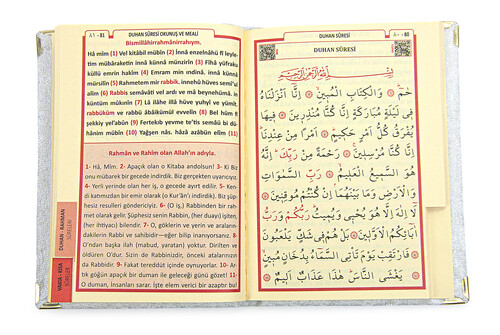 ٨١ - 81
DUHAN SÛRESİ OKUNUŞ VE MEALİ
Bismillâhirrahmânirrahıym.
Hâ mîm (1) Vel kitâbil mübîn (2) İnnâ enzelnâhü fî leyle-
tim mübâraketin innâ künnâ münzirîn (3) Fîhâ yüfraku
küllü emrin hakîm (4) Emram min ındinâ, innâ künnâ
mürsilîn (5) Rahmetem mir rabbik, innehû hüves semîul
alîm (6) Rabbis semâvâti vel ardı ve mâ beynehümâ, in
küntüm mûkınîn (7) Lâ ilâhe illâ hüve yuhyî ve yümît,
rabbüküm ve rabbü âbâikümül evvelîn (8) Bel hüm fî
şekkiy yel'abûn (9) Fertekıb yevme te'tis semâü bi dü-
hânim mübîn (10) Yağşen nâs, hâzâ azâbün elîm (11)
Rahmân ve Rahîm olan Allah'ın adıyla.
1- Hâ, Mîm. 2- Apaçık olan o Kitaba andolsun! 3- Ki Biz
onu mübarek bir gecede indirdik. Biz gerçekten uyarıcıyız.
4- Yerli yerinde olan her iş, o gecede ayırt edilir. 5- Ken-
di katımızdan bir emir olarak (o Kur'ân'ı indirdik). Biz şüp-
hesiz resulleri göndericiyiz. 6- (O iş,) Rabbinden bir rah-
met olarak gelir. Şüphesiz senin Rabbin, (her duayı) işiten,
(her ihtiyacı) bilendir. 7- O, göklerin ve yerin ve araların-
dakilerin Rabbi ve sahibidir—eğer bilip inanıyorsanız! 8-
O'ndan başka ilah (mabud, yaratan) yoktur. Dirilten ve
öldüren O'dur. Sizin de Rabbinizdir, önceki atalarınızın
da Rabbidir. 9- Fakat tereddüt içinde oynuyorlar. 10- Ar-
tık göğün apaçık bir duman ile geleceği günü gözet! 11-
O duman, insanları sarar. İşte elem verici bir azaptır bu!
DUHAN - RAHMAN
SÛRELERİ
VAKIA - KISA
SÛRELER
DUHAN SÛRESİ
٨٠ - 80
DUHAN SÛRESİ
بِسْمِ اللّٰهِ الرَّحْمٰنِ الرَّحِيمِ
حٰمٓ ۞ وَالْكِتَابِ الْمُبِينِ ۞ اِنَّٓا اَنْزَلْنَاهُ
فِى لَيْلَةٍ مُبَارَكَةٍ اِنَّا كُنَّا مُنْذِرِينَ ۞ فِيهَا
يُفْرَقُ كُلُّ اَمْرٍ حَكِيمٍ ۞ اَمْرًا مِنْ عِنْدِنَا
اِنَّا كُنَّا مُرْسِلِينَ ۞ رَحْمَةً مِنْ رَبِّكَ اِنَّهُ
هُوَ السَّمِيعُ الْعَلِيمُ ۞ رَبِّ السَّمٰوَاتِ
وَالْاَرْضِ وَمَا بَيْنَهُمَا اِنْ كُنْتُمْ مُوقِنِينَ ۞
لَٓا اِلٰهَ اِلَّا هُوَ يُحْيِى وَيُمِيتُ رَبُّكُمْ وَرَبُّ
اٰبَٓائِكُمُ الْاَوَّلِينَ ۞ بَلْ هُمْ فِى شَكٍّ يَلْعَبُونَ ۞
فَارْتَقِبْ يَوْمَ تَاْتِى السَّمَٓاءُ بِدُخَانٍ مُبِينٍ ۞
يَغْشَى النَّاسَ هٰذَا عَذَابٌ اَلِيمٌ ۞